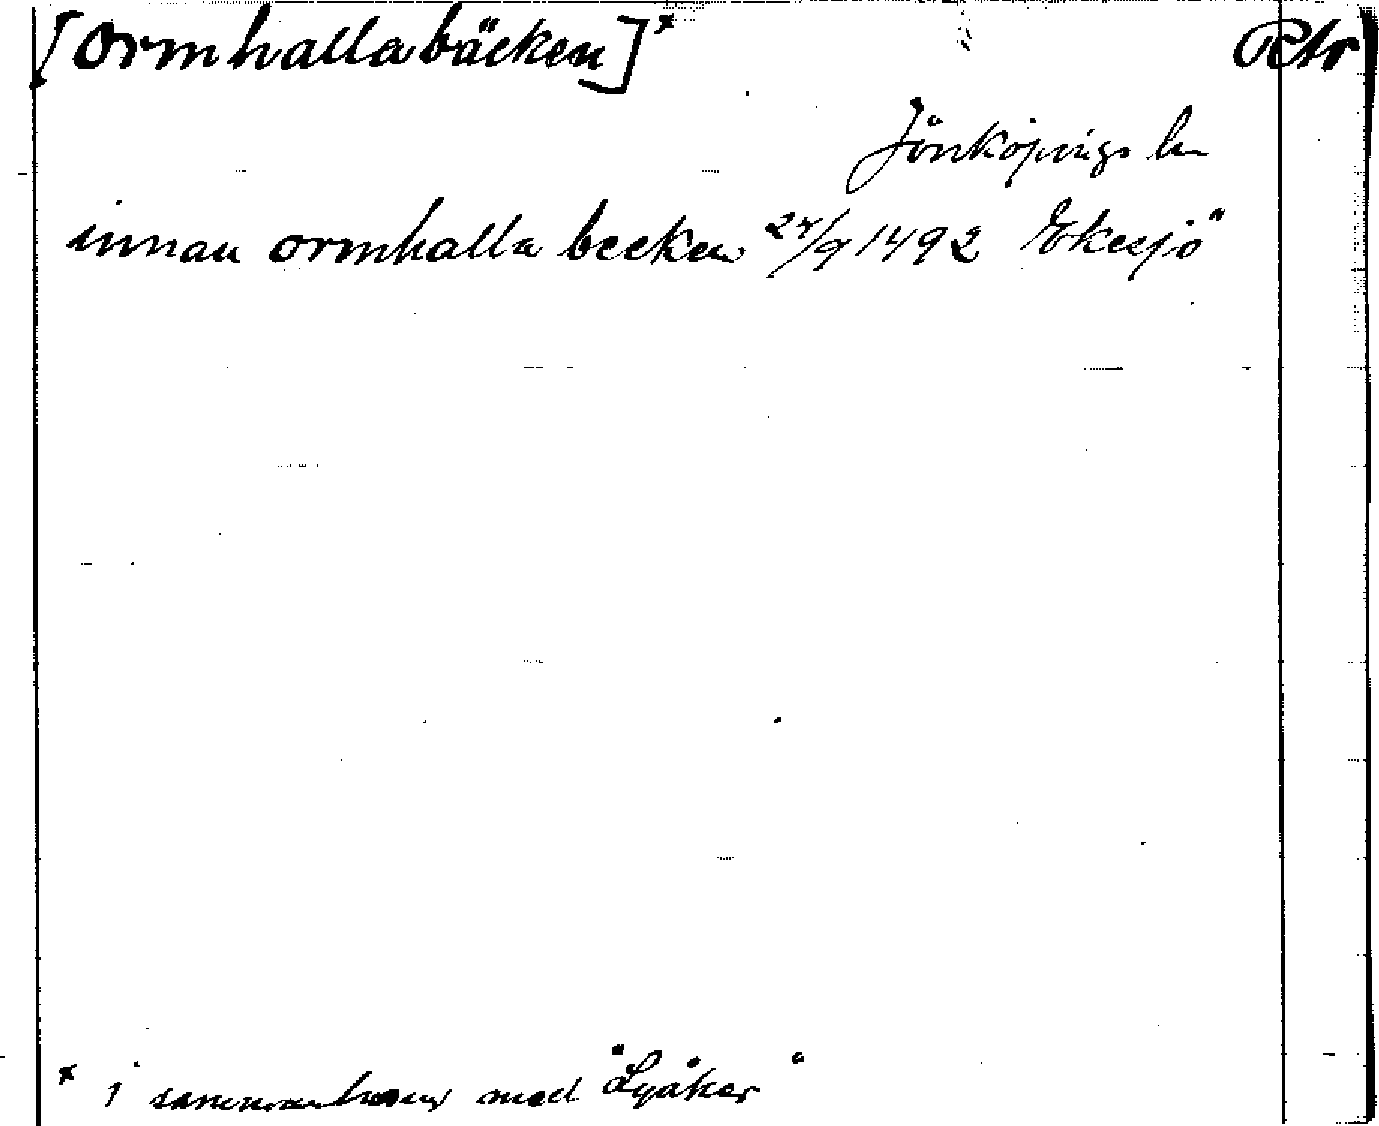 [Ormhallabäcken]* Rtr
Jönköpings län
innan ormhalla becken 24/9 1492 Eksjö
* i sammanhang med "Lyåker"